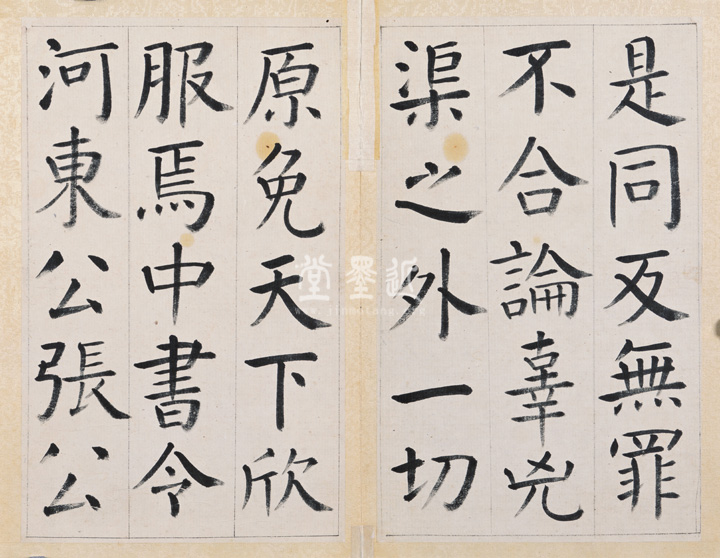 是同反無罪
不合論辜兇
渠之外一切
原免天下欣
服焉中書令
河東公張公
近墨堂
www.jinmotang.com